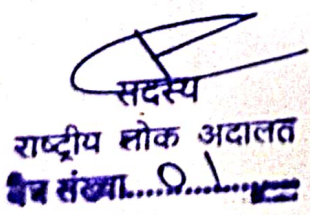 सदस्य
राष्ट्रीय लोक अदालत
बैंच संख्या.....01.....